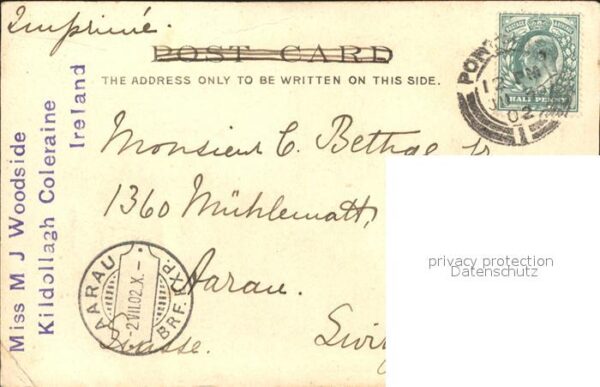 Imprimé.
POST CARD
THE ADDRESS ONLY TO BE WRITTEN ON THIS SIDE.
HALF PENNY
02
1
Miss M J Woodside
Kildollagh Coleraine
Ireland
Monsieur C. Bethge Jr
1360 Mühlematt,
Aarau.
Suisse.
AARAU
-2VII.02.X.-
BRF. EXP.
privacy protection
Datenschutz